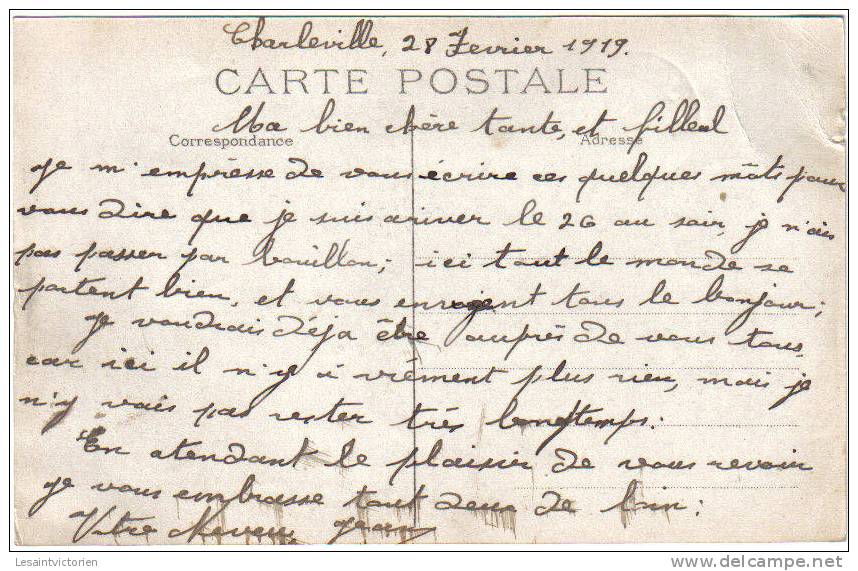 Charleville, 28 Fevrier 1919.
CARTE POSTALE
Ma bien chère tante, et filleul
Correspondance
Adresse
Je m'empresse de vous écrire ces quelques mots pour
vous dire que je suis ariver le 26 au soir, je n'ais
pas passer par bouillon; ici tout le monde se
portent bien, et vous envoyent tous le bonjour;
Je voudrais déja être auprès de vous tous,
car ici il n'y a vrément plus rien, mais je
n'y vais pas rester très longtemps:
En atendant le plaisir de vous revoir
Je vous embrasse tout deux de loin:
Votre Neveu, Jean
Lesaintvictorien
delcampe.net